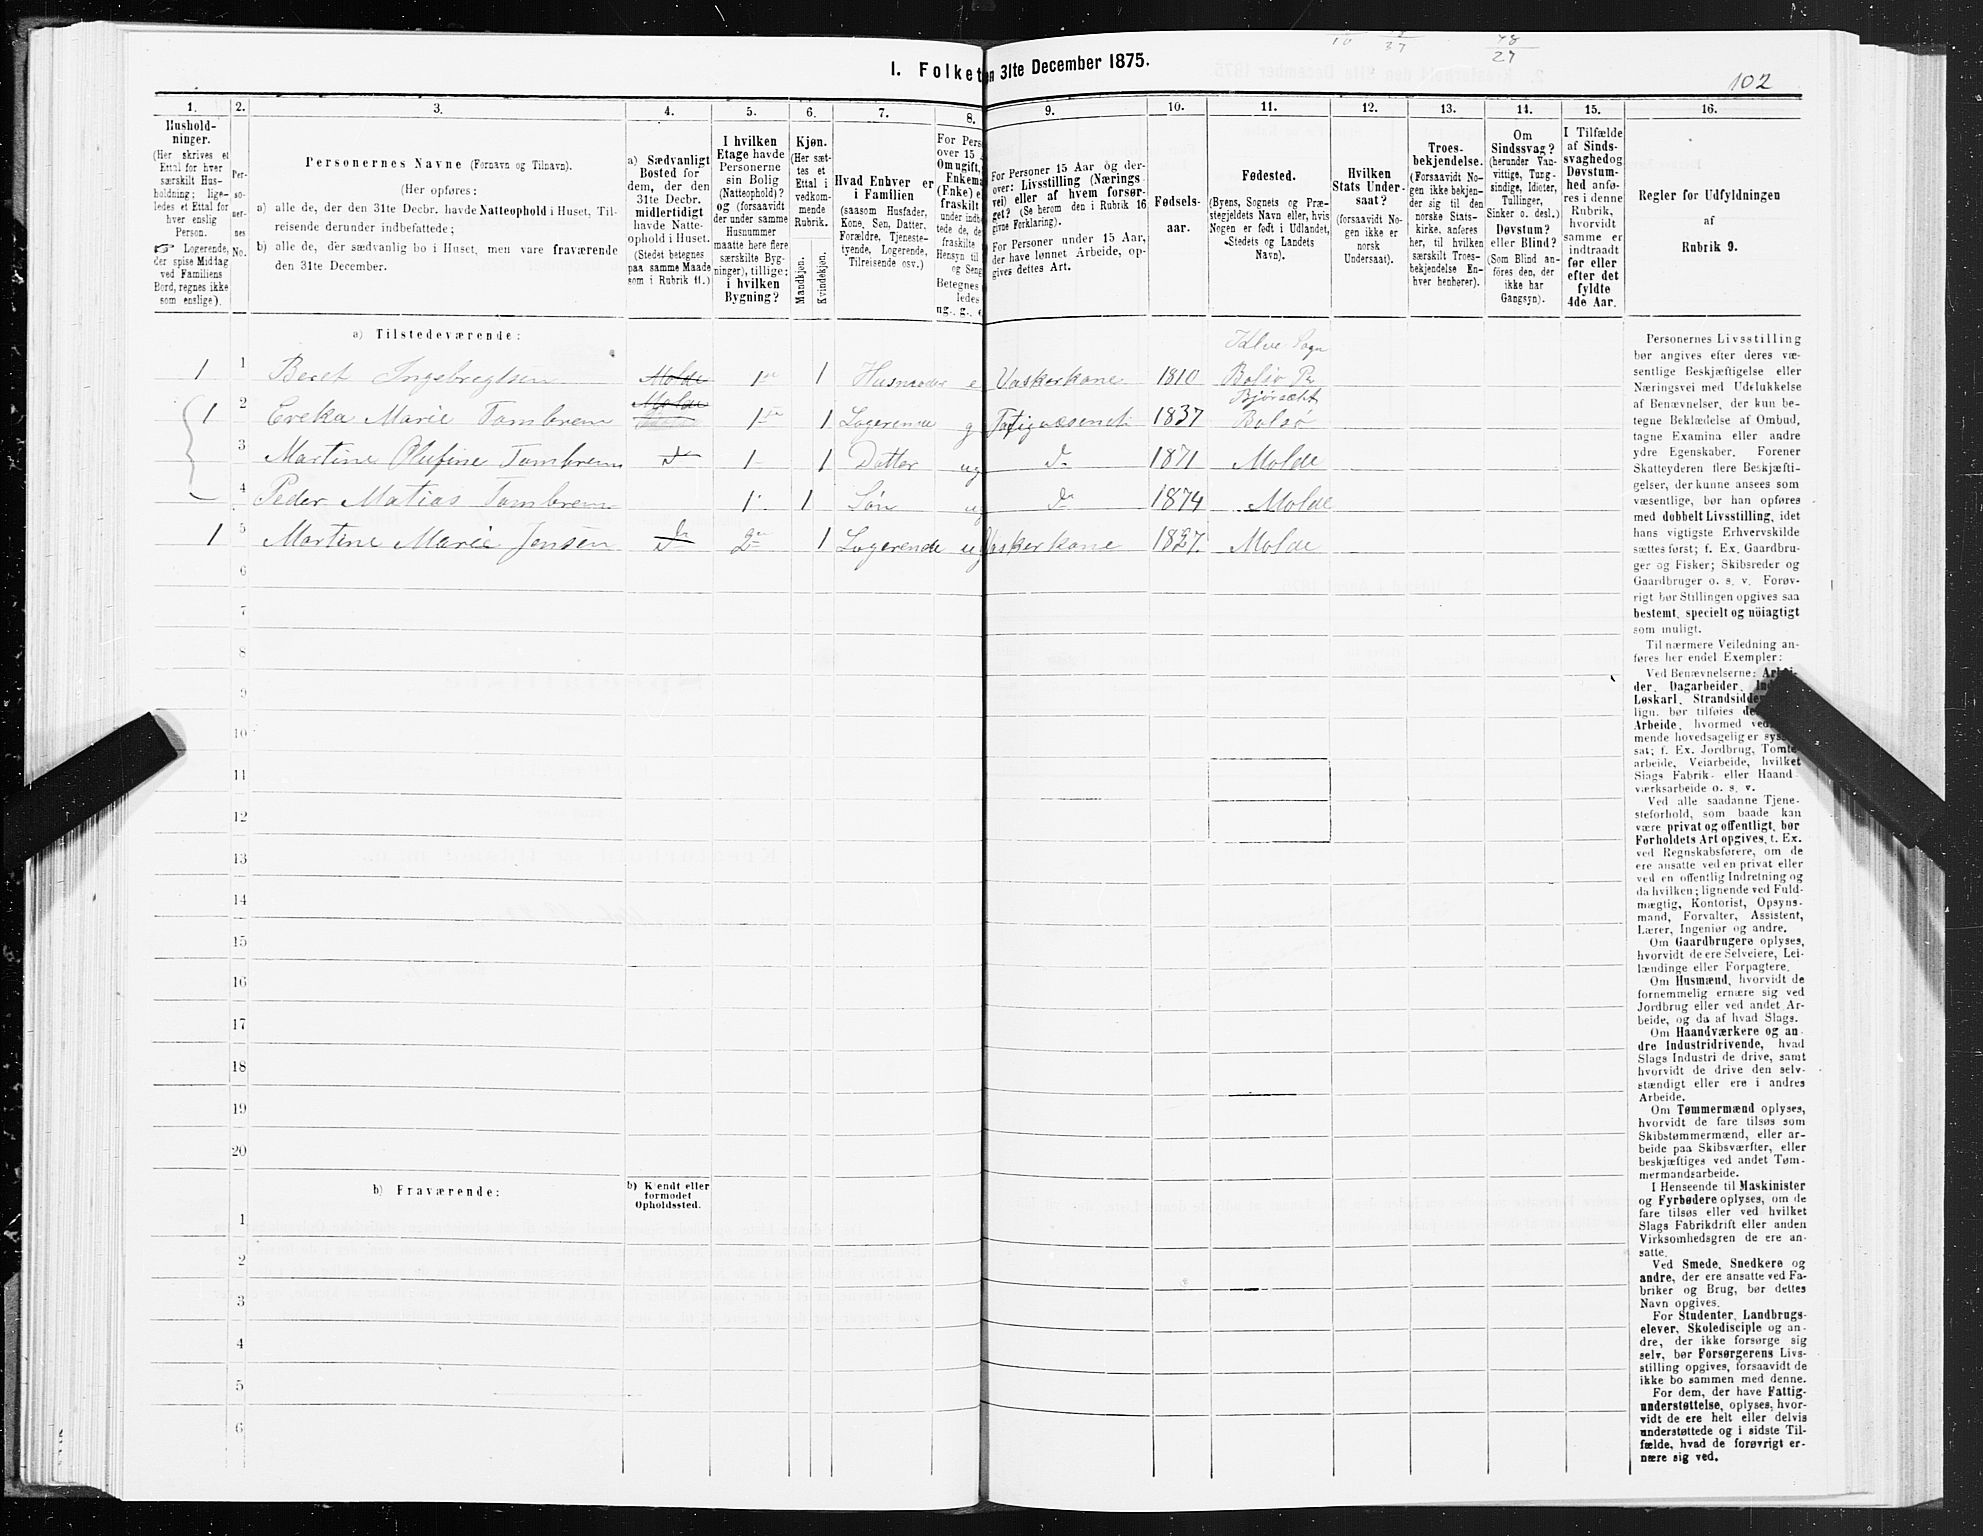 10 37 48
27
102
I. Folket
en 31te December 1875.
1. 2. 3. 4. 5. 6. 7. 8. 9. 10. 11. 12. 13. 14. 15. 16.
Hushold-
ninger.
(Her skrives et
Ettal for hver
særskilt Hus-
holdning; lige-
ledes et Ettal for
hver enslig
Person.
☞ Logerende,
der spise Middag
ved Familiens
Bord, regnes ikke
som enslige).
Per-
so-
ner-
nes
No.
Personernes Navne (Fornavn og Tilnavn).
(Her opføres:
a) alle de, der den 31te Decbr. havde Natteophold i Huset, Til-
reisende derunder indbefattede;
b) alle de, der sædvanlig bo i Huset, men vare fraværende
den 31te December.
a) Sædvanligt
Bosted for
dem, der den
31te Decbr.
midlertidigt
havde Natte-
ophold i Huset.
(Stedet betegnes
paa samme Maade
som i Rubrik 11.)
I hvilken
Etage havde
Personerne
sin Bolig
(Natteophold)?
og (forsaavidt
der under samme
Husnummer
maatte here flere
særskilte Byg-
ninger), tillige:
i hvilken
Bygning?
Kjøn.
(Her sæt-
tes et
Ettal i
vedkom-
mende
Rubrik.
Mandkjøn.
Kvindekjøn.
Hvad Enhver er
i Familien
(saasom Husfader,
Kone, Søn, Datter,
Forældre, Tjeneste-
tyende, Logerende,
Tilreisende osv.)
For Pers
over 15
Om ugift,
Enkema
(Fnke) e
fraskilt
under indbe
tede de, d
fraskilte
Hensyn til
og Seng
Betegnes
ledes
ug., g., e
For Personer 15 Aar og der-
over: Livsstilling (Nærings-
vei) eller af hvem forsør-
get? (Se herom den i Rubrik 16
givne Forklaring).
For Personer under 15 Aar,
der have lønnet Arbeide, op-
gives dettes Art.
Fødsels-
aar.
Fødested.
(Byens, Sognets og Præ-
stegjeldets Navn eller, hvis
Nogen er født i Udlandet,
Stedets og Landets
Navn).
Hvilken
Stats Under-
saat?
(forsaavidt No-
gen ikke er
norsk
Undersaat).
Troes-
bekjendelse.
(Forsaavidt No-
gen ikke bekjen-
der sig til den
norske Stats-
kirke, anføres
her, til hvilken
særskilt Troes-
bekjendelse En-
hver henhører).
Om
Sindssvag?
(herunder Van-
vittige, Tung-
sindige, Idioter,
Tullinger,
Sinker o. desl.)
Døvstum?
eller Blind?
(Som Blind an-
føres den, der
ikke har
Gangsyn).
I Tilfælde
af Sinds-
svaghedog
Døvstum-
hed anfø-
res i denne
Rubrik,
hvorvidt
samme er
indtraadt
før eller
efter det
fyldte
4de Aar.
Regler for Udfyldningen
af
Rubrik 9.
a) Tilstedeværende:
Kleve Sogn
1 1 Beret Ingebregtsen Molde 1ste 1 Husmoder e Vaskerkone 1810 Bolsø Pr
Molde Bjørsæt
1 2 Ereka Marie Tambrem 1ste 1 Logerende g Fattigvæsenet 1837 Bolsø
3 Martine Olufine Tambrem do 1 1 Datter ug do 1871 Molde
4 Peder Matias Tambrem 1 1 Søn ug do 1874 Molde
1 5 Martine Marie Jensen do 2en 1 Logerende ug Vaskerkone 1827. Molde
6
7
8
9
10
11
12
13
14
15
16
17
18
19
20
b) Fraværende:
b) Kjendt eller
formodet
Opholdssted.
1
2
3
4
5
6
Personernes Livsstilling
bør angives efter deres væ-
sentlige Beskjæftigelse eller
Næringsvei med Udelukkelse
af Benævnelser, der kun be-
tegne Beklædelse af Ombud,
tagne Examina eller andre
ydre Egenskaber. Forener
Skatteyderen flere Beskjæfti-
gelser, der kunne ansees som
væsentlige, bør han opføres
med dobbelt Livsstilling, idet
hans vigtigste Erhvervskilde
sættes først; f. Ex. Gaardbru-
ger og Fisker; Skibsreder og
Gaardbruger o. s. v. Forøv-
rigt bør Stillingen opgives saa
bestemt, specielt og nöiagtigt
som muligt.
Til nærmere Veiledning an-
føres her endel Exempler:
Ved Benævnelserne: Arbei-
der, Dagarbeider, Ind
Løskarl, Strandsidder
lign. bør tilføies de
Arbeide, hvormed ved
mende hovedsagelig er syss
sat; f. Ex. Jordbrug, Tomte-
arbeide, Veiarbeide, hvilket
Slags Fabrik- eller Haand-
værksarbeide o. s. v.
Ved alle saadanne Tjene-
steforhold, som baade kan
være privat og offentligt, bør
Forholdets Art opgives, t. Ex.
ved Regnskabsførere, om de
ere ansatte ved en privat eller
ved en offentlig Indretning og
da hvilken; lignende ved Fuld-
mægtig, Kontorist, Opsyns-
mand, Forvalter, Assistent,
Lærer, Ingeniør og andre.
Om Gaardbrugere oplyses,
hvorvidt de ere Selveiere, Lei-
lændinge eller Forpagtere.
Om Husmænd, hvorvidt de
fornemmelig ernære sig ved
Jordbrug eller ved andet Ar-
beide, og da af hvad Slags.
Om Haandværkere og an-
dre Industridrivende, hvad
Slags Industri de drive, samt
hvorvidt de drive den selv-
stændigt eller ere i andres
Arbeide.
Om Tømmermænd oplyses,
hvorvidt de fare tilsøs som
Skibstømmermænd, eller ar-
beide paa Skibsværfter, eller
beskjæftiges ved andet Tøm-
mermandsarbeide.
I Henseende til Maskinister
og Fyrbødere oplyses, om de
fare tilsøs eller ved hvilket
Slags Fabrikdrift eller anden
Virksomhedsgren de ere an-
satte.
Ved Smede, Snedkere og
andre, der ere ansatte ved Fa-
briker og Brug, bør dettes
Navn opgives.
For Studenter, Landbrugs-
elever, Skoledisciple og an-
dre, der ikke forsørge sig
selv, bør Forsørgerens Livs-
stilling opgives, forsaavidt de
ikke bo sammen med denne.
For dem, der have Fattig-
understøttelse, oplyses, hvor-
vidt de ere helt eller delvis
understøttede og i sidste Til-
fælde, hvad de forøvrigt er-
nære sig ved.